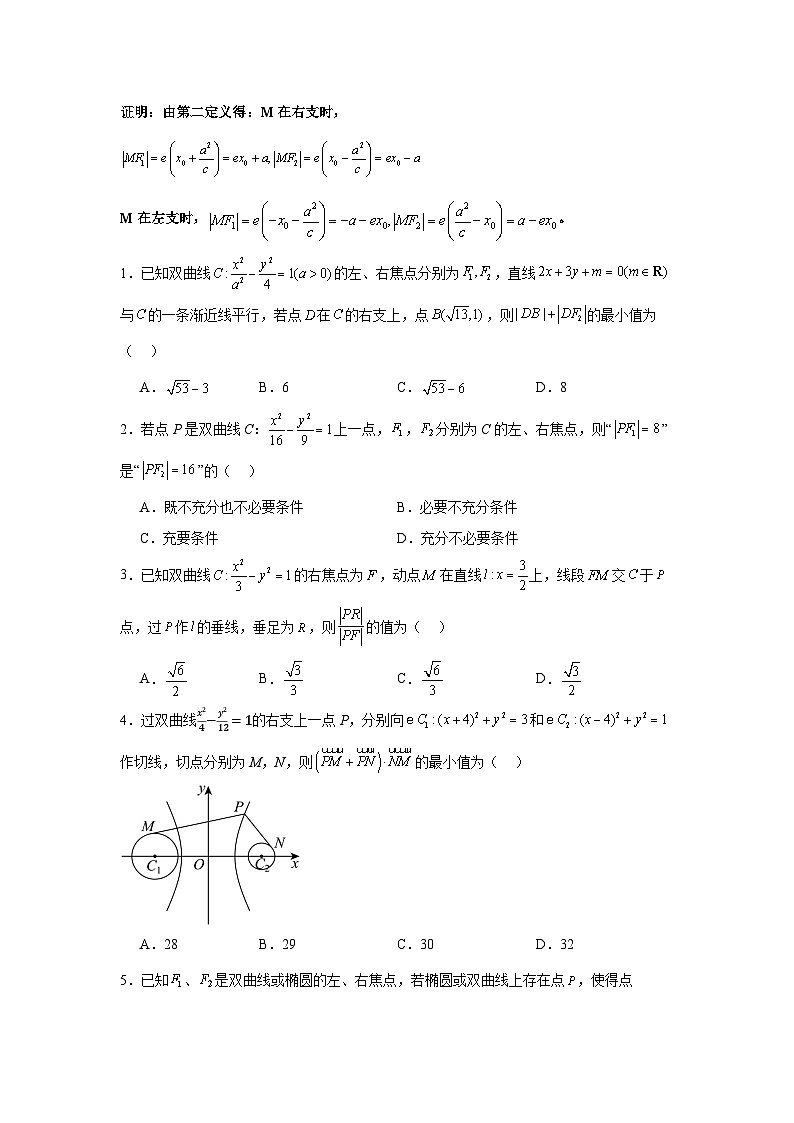 证明：由第二定义得：M 在右支时，
|MF₁| = e(x₀ + a²/c) = ex₀ + a, |MF₂| = e(x₀ − a²/c) = ex₀ − a
M 在左支时，|MF₁| = e(−x₀ − a²/c) = −a − ex₀, |MF₂| = e(a²/c − x₀) = a − ex₀。
1．已知双曲线 C : x²/a² − y²/4 = 1(a > 0) 的左、右焦点分别为 F₁, F₂，直线 2x + 3y + m = 0(m ∈ R)
与 C 的一条渐近线平行，若点 D 在 C 的右支上，点 B(√13,1)，则 |DB| + |DF₂| 的最小值为
（ ）
A．√53 − 3 B．6 C．√53 − 6 D．8
2．若点 P 是双曲线 C：x²/16 − y²/9 = 1 上一点，F₁，F₂ 分别为 C 的左、右焦点，则“|PF₁| = 8”
是“|PF₂| = 16”的（ ）
A．既不充分也不必要条件 B．必要不充分条件
C．充要条件 D．充分不必要条件
3．已知双曲线 C : x²/3 − y² = 1 的右焦点为 F，动点 M 在直线 l : x = 3/2 上，线段 FM 交 C 于 P
点，过 P 作 l 的垂线，垂足为 R，则 |PR|/|PF| 的值为（ ）
A．√6/2 B．√3/3 C．√6/3 D．√3/2
4．过双曲线 x²/4 − y²/12 = 1 的右支上一点 P，分别向 ∈ C₁ : (x + 4)² + y² = 3 和 ∈ C₂ : (x − 4)² + y² = 1
作切线，切点分别为 M，N，则 (PM + PN)·NM 的最小值为（ ）
y
P
M
N
C₁ O C₂ x
A．28 B．29 C．30 D．32
5．已知 F₁、F₂ 是双曲线或椭圆的左、右焦点，若椭圆或双曲线上存在点 P，使得点